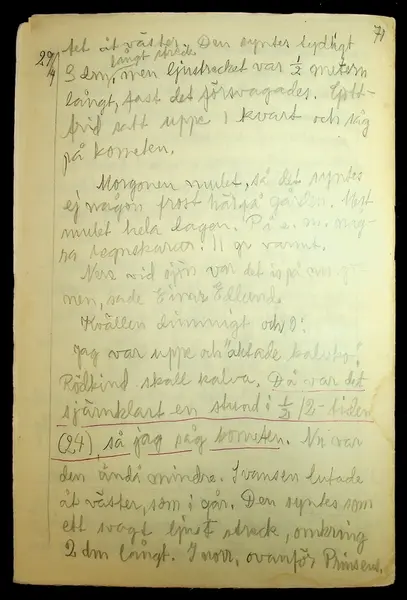 71
tet åt väster. Den syntes tydligt
långt streck
29/4 3 dm, men ljusstrecket var ½ metern
långt, fast det försvagades. Gott-
frid satt uppe 1 kvart och såg
på kometen.
Morgonen mulet, så det syntes
ej någon frost här på gården. Mest
mulet hela dagen. På e. m. någ-
ra regnskurar. 11 gr varmt.
Nere vid sjön var det is på
nen, sade Einar Edlund.
Kvällen dimmigt och 9:
Jag var uppe och "aktade kalvko".
Rödkind skall kalva. Då var det
stjärnklart en stund i ½ 12-tiden
(24), så jag såg kometen. Nu var
den ändå mindre. Svansen lutade
åt väster, som i går. Den syntes som
ett svagt ljust streck, omkring
2 dm långt. I norr, ovanför Prinsens.